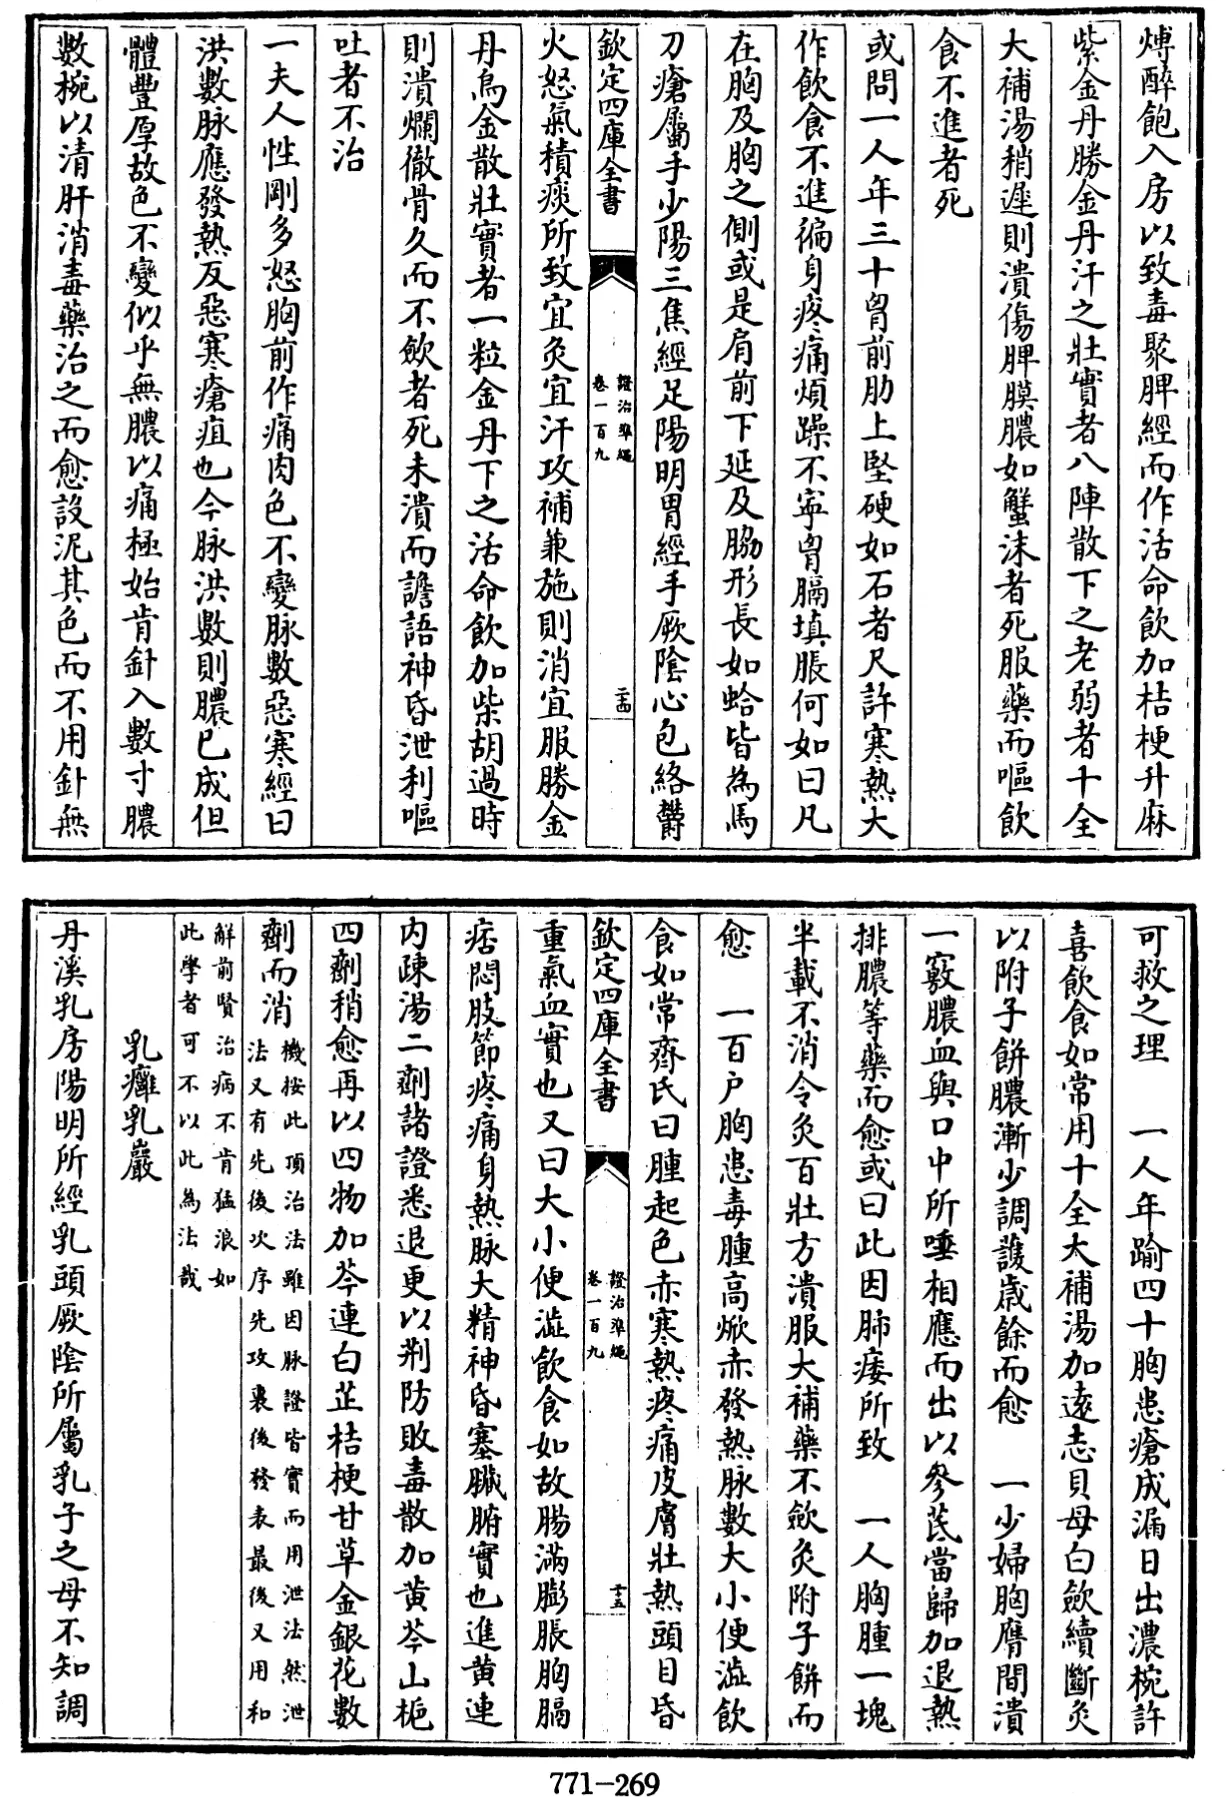 煿醉飽入房以致毒聚脾經而作活命飲加桔梗升麻
紫金丹勝金丹汗之壯實者八陣散下之老弱者十全
大補湯稍遲則潰傷脾膜膿如蟹沫者死服藥而嘔飲
食不進者死
或問一人年三十胷前肋上堅硬如石者尺許寒熱大
作飲食不進徧身疼痛煩躁不寧胷膈填脹何如曰凡
在胸及胸之側或是肩前下延及脇形長如蛤皆為馬
刀瘡屬手少陽三焦經足陽明胃經手厥陰心包絡欝
欽定四庫全書
證治準繩
卷一百九
二十四
火怒氣積痰所致宜灸宜汗攻補兼施則消宜服勝金
丹烏金散壯實者一粒金丹下之活命飲加柴胡過時
則潰爛徹骨久而不歛者死未潰而譫語神昏泄利嘔
吐者不治
一夫人性剛多怒胸前作痛肉色不變脉數惡寒經曰
洪數脉應發熱反惡寒瘡疽也今脉洪數則膿已成但
體豐厚故色不變似乎無膿以痛極始肯針入數寸膿
數椀以清肝消毒藥治之而愈設泥其色而不用針無
可救之理　一人年踰四十胸患瘡成漏日出濃椀許
喜飲食如常用十全大補湯加遠志貝母白歛續斷灸
以附子餅膿漸少調護歲餘而愈　一少婦胸膺間潰
一竅膿血與口中所唾相應而出以參芪當歸加退熱
排膿等藥而愈或曰此因肺痿所致　一人胸腫一塊
半載不消令灸百壯方潰服大補藥不歛灸附子餅而
愈　一百户胸患毒腫高焮赤發熱脉數大小便澁飲
食如常齊氏曰腫起色赤寒熱疼痛皮膚壯熱頭目昏
欽定四庫全書
證治準繩
卷一百九
二十五
重氣血實也又曰大小便澁飲食如故腸滿膨脹胸膈
痞悶肢節疼痛身熱脉大精神昏塞臟腑實也進黄連
内疎湯二劑諸證悉退更以荆防敗毒散加黄芩山梔
四劑稍愈再以四物加芩連白芷桔梗甘草金銀花數
劑而消
機按此項治法雖因脉證皆實而用泄法然泄
法又有先後次序先攻裏後發表最後又用和
解前賢治病不肯猛浪如
此學者可不以此為法哉
乳癰乳巖
丹溪乳房陽明所經乳頭厥陰所屬乳子之母不知調
771-269